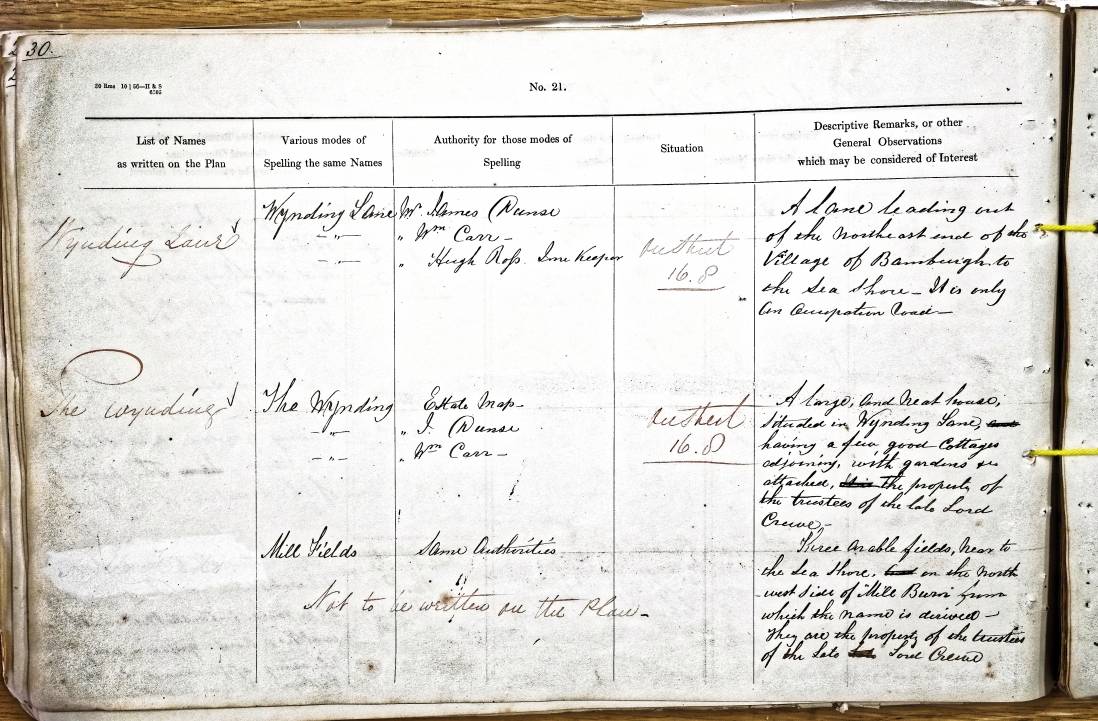 30.
20 Rms 10 | 56—H & S
6505
No. 21.
List of Names
as written on the Plan
Various modes of
Spelling the same Names
Authority for those modes of
Spelling
Situation
Descriptive Remarks, or other
General Observations
which may be considered of Interest
Wynding Lane
Wynding Lane
— „ —
— „ —
Mr. James
„ Wm Carr —
„ Hugh Ross. Inn Keeper
16.8
A lane leading out
of the Northeast end of the
Village of Bamburgh to
the Sea Shore — It is only
an Occupation Road —
The Wynding
The Wynding
— „ —
— „ —
Estate Map —
„ J.
„ Wm Carr —
16.8
A large, and Neat house,
Situated in Wynding Lane, and
having a few good Cottages
adjoining, with gardens &c
attached, it is the property of
the trustees of the late Lord
Crewe —
Mill Fields
Same Authorities
Three arable fields, Near to
the Sea Shore, on the North
west Side of Mill Burn from
which the name is derived —
They are the property of the trustees
of the late Lord Crewe
Not to be written on the Plan —